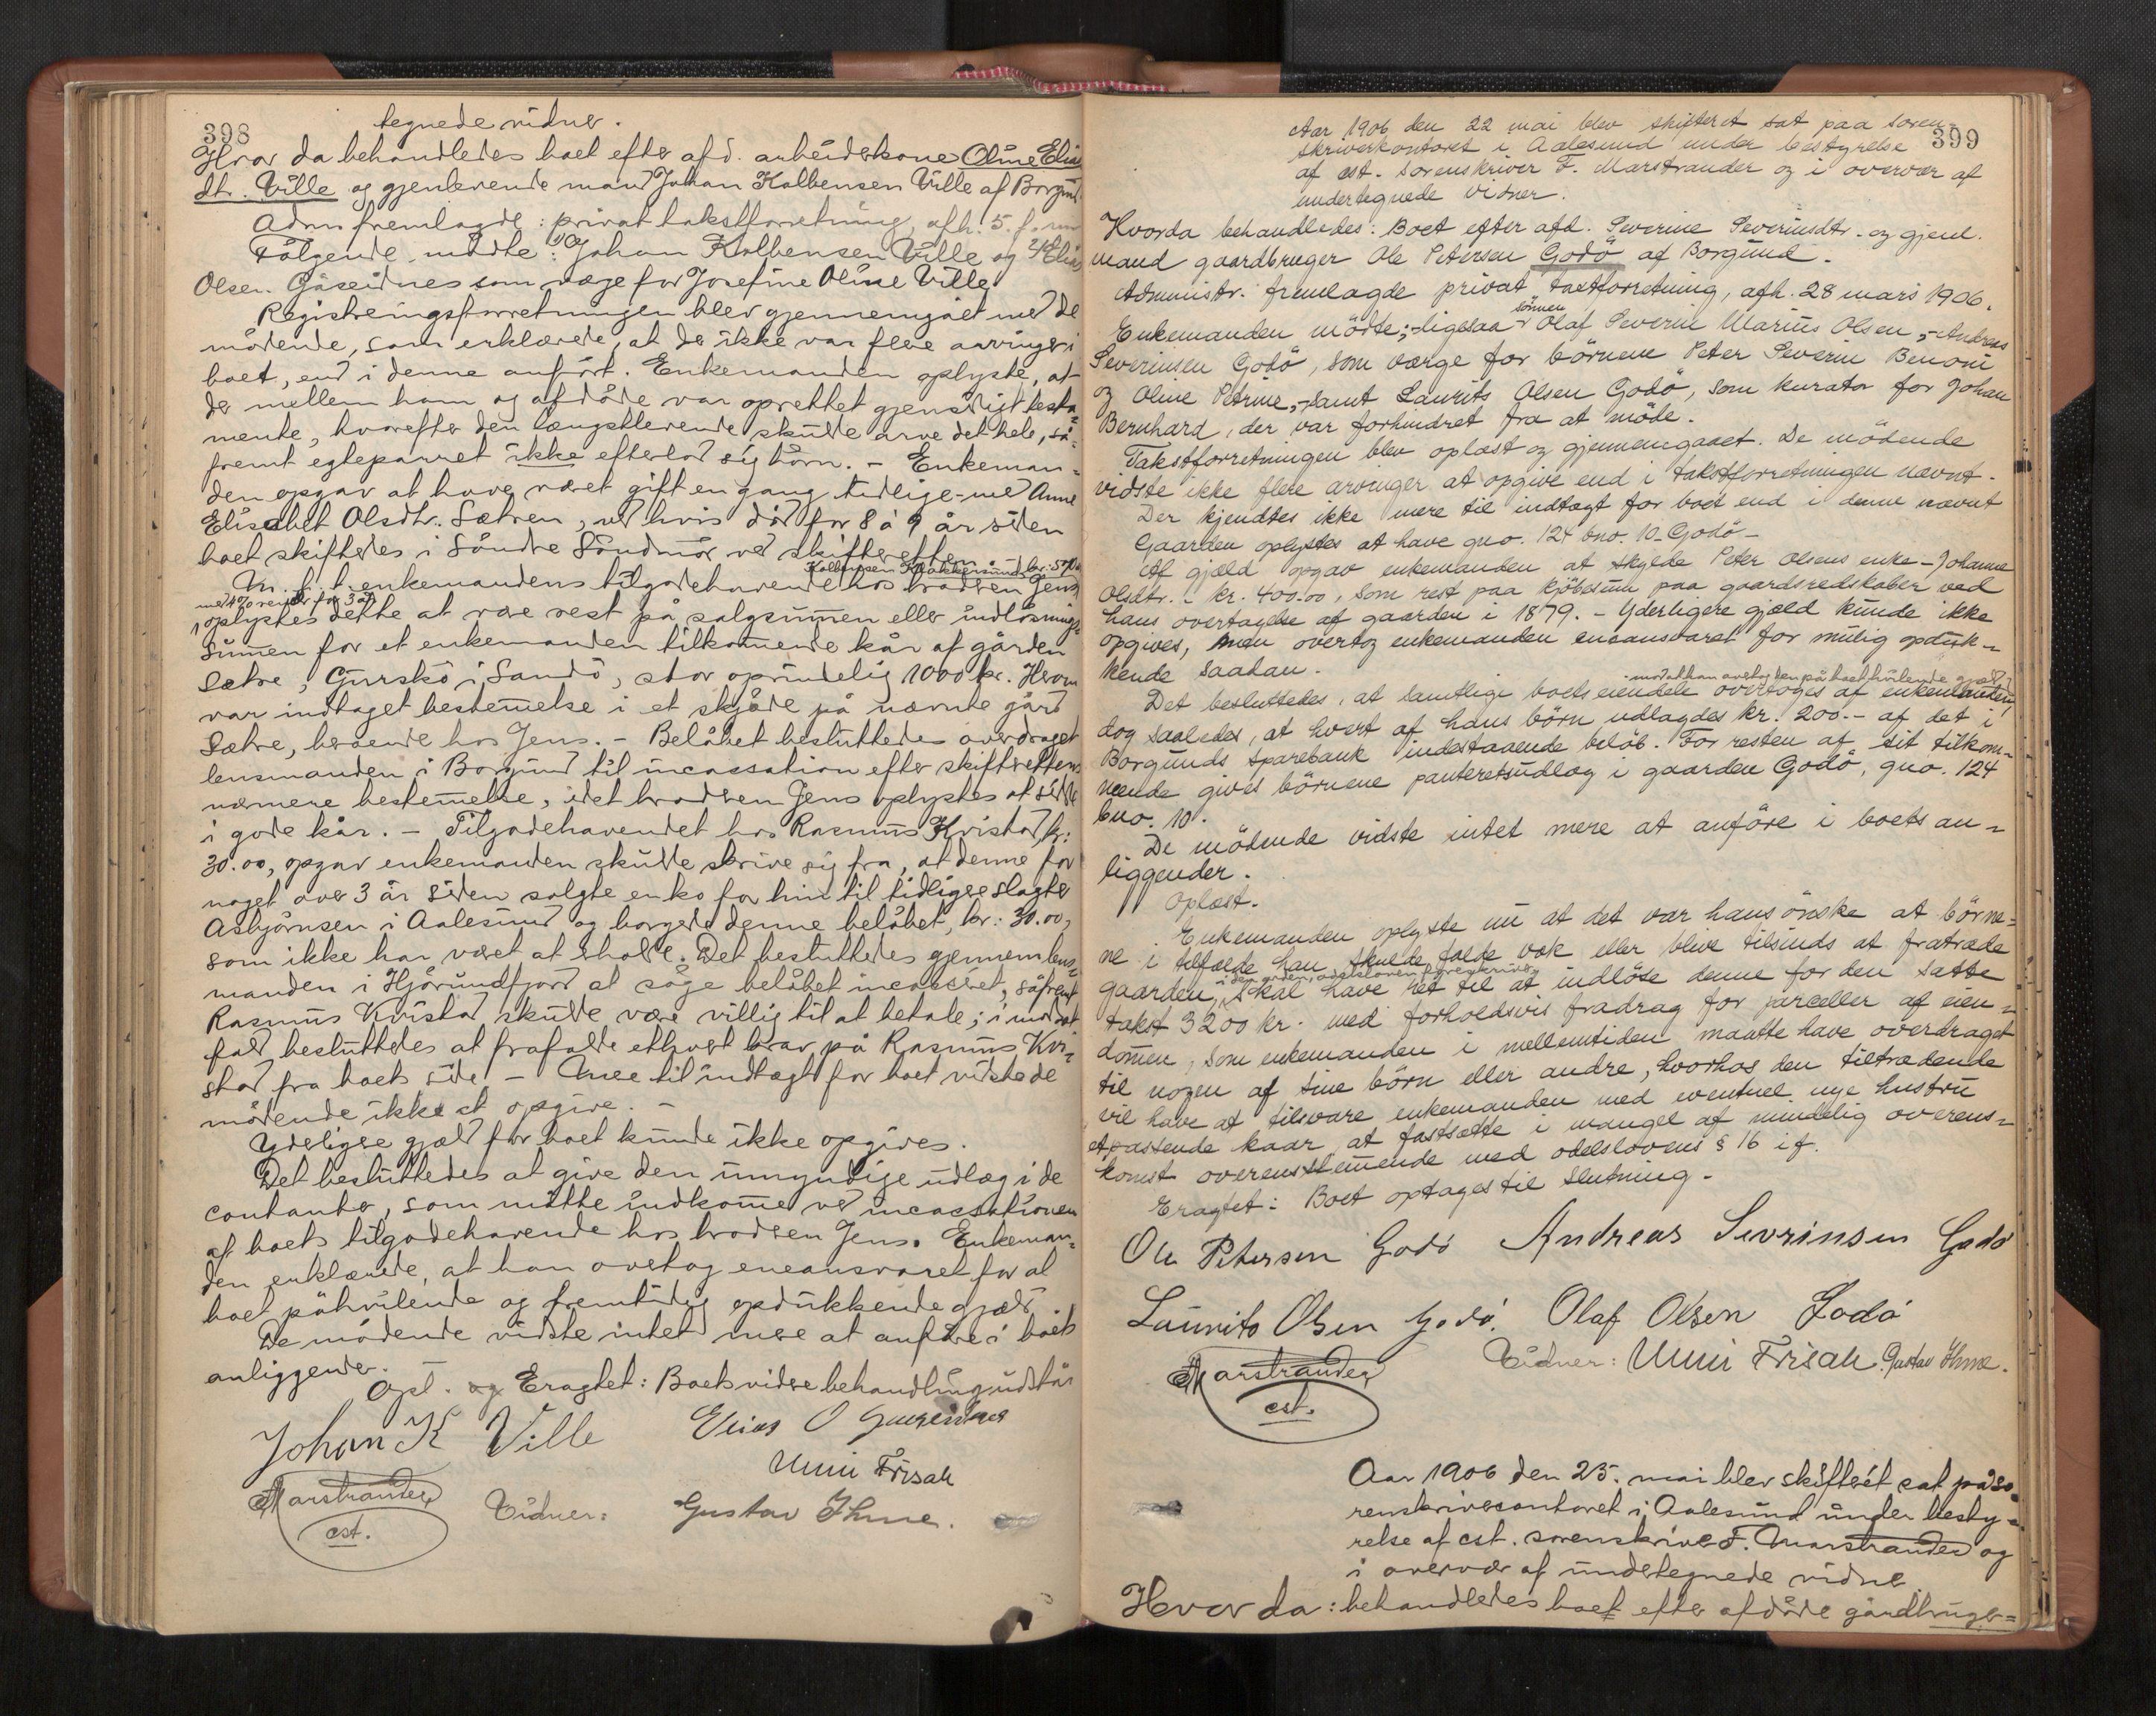 398
tegnede vidner.
Hvor da behandledes boet efter afd. arbeiderkone Oline Elias
dt. Ville og gjenlevende mand Johan Kolbensen Ville af Borgund.
Adm. fremlagde: privat takstforretning, afh. 5. f. m.
Følgende mødte: 1) Johan Kolbensen Ville og 2) Elias
Olsen Gåseidnes som værge for Josefine Oline Ville.
Registreringsforretningen blev gjennemgået med de
mødende, som erklærede, at der ikke var flere arvinger i
boet, end i denne anført. Enkemanden oplyste, at
der mellem ham og afdøde var oprettet gjensidigt testa=
mente, hvorefter den længstlevende skulde arve det hele, så=
fremt egteparret ikke efterlod sig børn. - Enkeman=
den opgav at have været gift en gang tidligere - med Anne
Elisabet Olsdtr. Sætren, ved hvis død for 8 à 9 år siden
boet skiftedes i Søndre Søndmør ved skifteretten.
M. h. t. enkemandens tilgodehavende hos broderen Jens
Kolbensen Kloakkersund
med 4% renter for 3 år
oplystes dette at være rest på salgsummen eller indløsnings=
summen for et enkemanden tilkommende kår af gården
Sætre, Gurskø i Sandø, stor oprindelig 1000 kr. Herom
var indtaget bestemmelse i et skjøde på nævnte gård
Sætre, beroende hos Jens. - Beløbet besluttedes overdraget
lensmanden i Borgund til incassation efter skifterettens
nærmere bestemmelse, idet broderen Jens oplystes at sidde
i gode kår. - Tilgodehavendet hos Rasmus Kvistad, kr:
30.00, opgav enkemanden skulde skrive sig fra, at denne for
noget over 3 år siden solgte en ko for ham til tidligere slagter
Asbjørnsen i Aalesund og borgede denne beløbet, kr: 30.00,
som ikke har været at erholde. Det besluttedes gjennem lens=
manden i Hjørundfjord at søge beløbet incasseret, såfremt
Rasmus Kvistad skulde være villig til at betale; i modsat
fald besluttedes at frafalde ethvert krav på Rasmus Kvi=
stad fra boets side - Mere til indtægt for boet vidste de
mødende ikke at opgive. -
Yderligere gjæld for boet kunde ikke opgives.
Det besluttedes at give den umyndige udlæg i de
contanter, som måtte indkomme ved incassationen
af boets tilgodehavende hos broderen Jens. Enkeman=
den erklærede, at han overtog eneansvaret for al
boet påhvilende og fremtidig opdukkende gjæld.
De mødende vidste intet mere at anføre i boets
anliggender.
Opl. og Eragtet: Boets videre behandling udstår
Johan K Ville Elias O Gaaseidnes
Unni Frisak
Marstrander Vidner: Gustav Ihme.
cst.
399
Aar 1906 den 22 mai blev skifteret sat paa soren-
skriverkontoret i Aalesund under bestyrelse
af cst. sorenskriver F. Marstrander og i overvær af
undertegnede vidner.
Hvorda behandledes: Boet efter afd. Severine Severinsdtr. og gjenl.
mand gaardbruger Ole Petersen Godö af Borgund.
Administr. fremlagde privat taxtforretning, afh. 28 mars 1906.
Enkemanden mödte; - ligesaa sönnen Olaf Severin Marius Olsen, - Andreas
Severinsen Godö, som værge for börnene Peter Severin Benoni
og Oline Petrine, - samt Laurits Olsen Godö, som kurator for Johan
Bernhard, der var forhindret fra at möde.
Takstforretningen blev oplæst og gjennemgaaet. De mödende
vidste ikke flere arvinger at opgive end i takstforretningen nævnt.
Der kjendtes ikke mere til indtægt for boet end i denne nævnt
Gaarden oplystes at have gno. 124 bno. 10 - Godö -
Af gjæld opgav enkemanden at skylde Peter Olsens enke - Johanne
Olsdtr. - kr. 400.00, som rest paa kjöbesum paa gaardsredskaber ved
hans overtagelse af gaarden i 1879. - Yderligere gjæld kunde ikke
opgives, men overtog enkemanden eneansvaret for mulig opduk=
kende saadan.
mod at han overtog den på boet hvilende gjæld
Det besluttedes, at samtlige boets eiendele overtoges af enkemanden,
dog saaledes, at hvert af hans börn udlagdes kr. 200.- af det i
Borgunds sparebank indestaaende belöb. For resten af sit tilkom=
mende gives börnene panteretsudlæg i gaarden Godö, gno. 124
bno. 10.
De mödende vidste intet mere at anföre i boets an=
liggender.
Oplæst.
Enkemanden oplyste nu at det var hans önske at börne=
ne i tilfælde han skulde falde væk eller blive tilsinds at fratræde
i den orden, odelsloven foreskriver
gaarden, skal have ret til at indlöse denne for den satte
takst 3200 kr. med forholdsvis fradrag for parceller af eien=
dommen, som enkemanden i mellemtiden maatte have overdraget
til nogen af sine börn eller andre, hvorhos den tiltrædende
vil have at tilsvare enkemanden med eventuel nye hustru
et passende kaar, at fastsætte i mangel af mindelig overens=
komst overensstemmende med odelslovens § 16 if.
Eragtet: Boet optages til slutning.
Ole Petersen Godö Andreas Sevrinsen Godö
Laurits Olsen Godö. Olaf Olsen Godö
Marstrander Vidner: Unni Frisak. Gustav Ihme.
cst.
Aar 1906 den 25. mai blev skifteret sat på so=
renskrivercontoret i Aalesund under besty=
relse af cst. sorenskriver F. Marstrander og
i overvær af undertegnede vidner
Hvor da: behandledes boet efter afdøde gårdbruger=